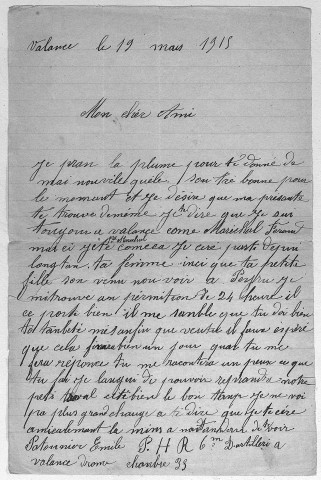 Valance le 19 mars 1915
Mon chèr Ami
Je pran la plume pour té donné de
mai nouvéles quéle son tré bonne pour
le moment et Je désire que ma présante
té trouve de même Je dire que Je sur
toujour a valance come Maréchal Ferant
mai ci Jété Je ceré parti depui
longtan. ta femme inci que ta petite
fille son venu nou voir a Je
mi trouvé an pérmition de 24 heure il
ce porte bien il me sanble que tu doi bien
que veutu il faux espéré
que cela bien un jour quan tu me
fera réponce tu me racontera un peux ce que
tu fai Je langui de pouvoir reprandre notre
peti traval été bien le bon temp Je ne voi
pa plus grand chause a te dire que Je te cère
amicalement la min an de voir
Patonnier Emile P. H. R 6m Dartillerie a
valance drome chambre 35